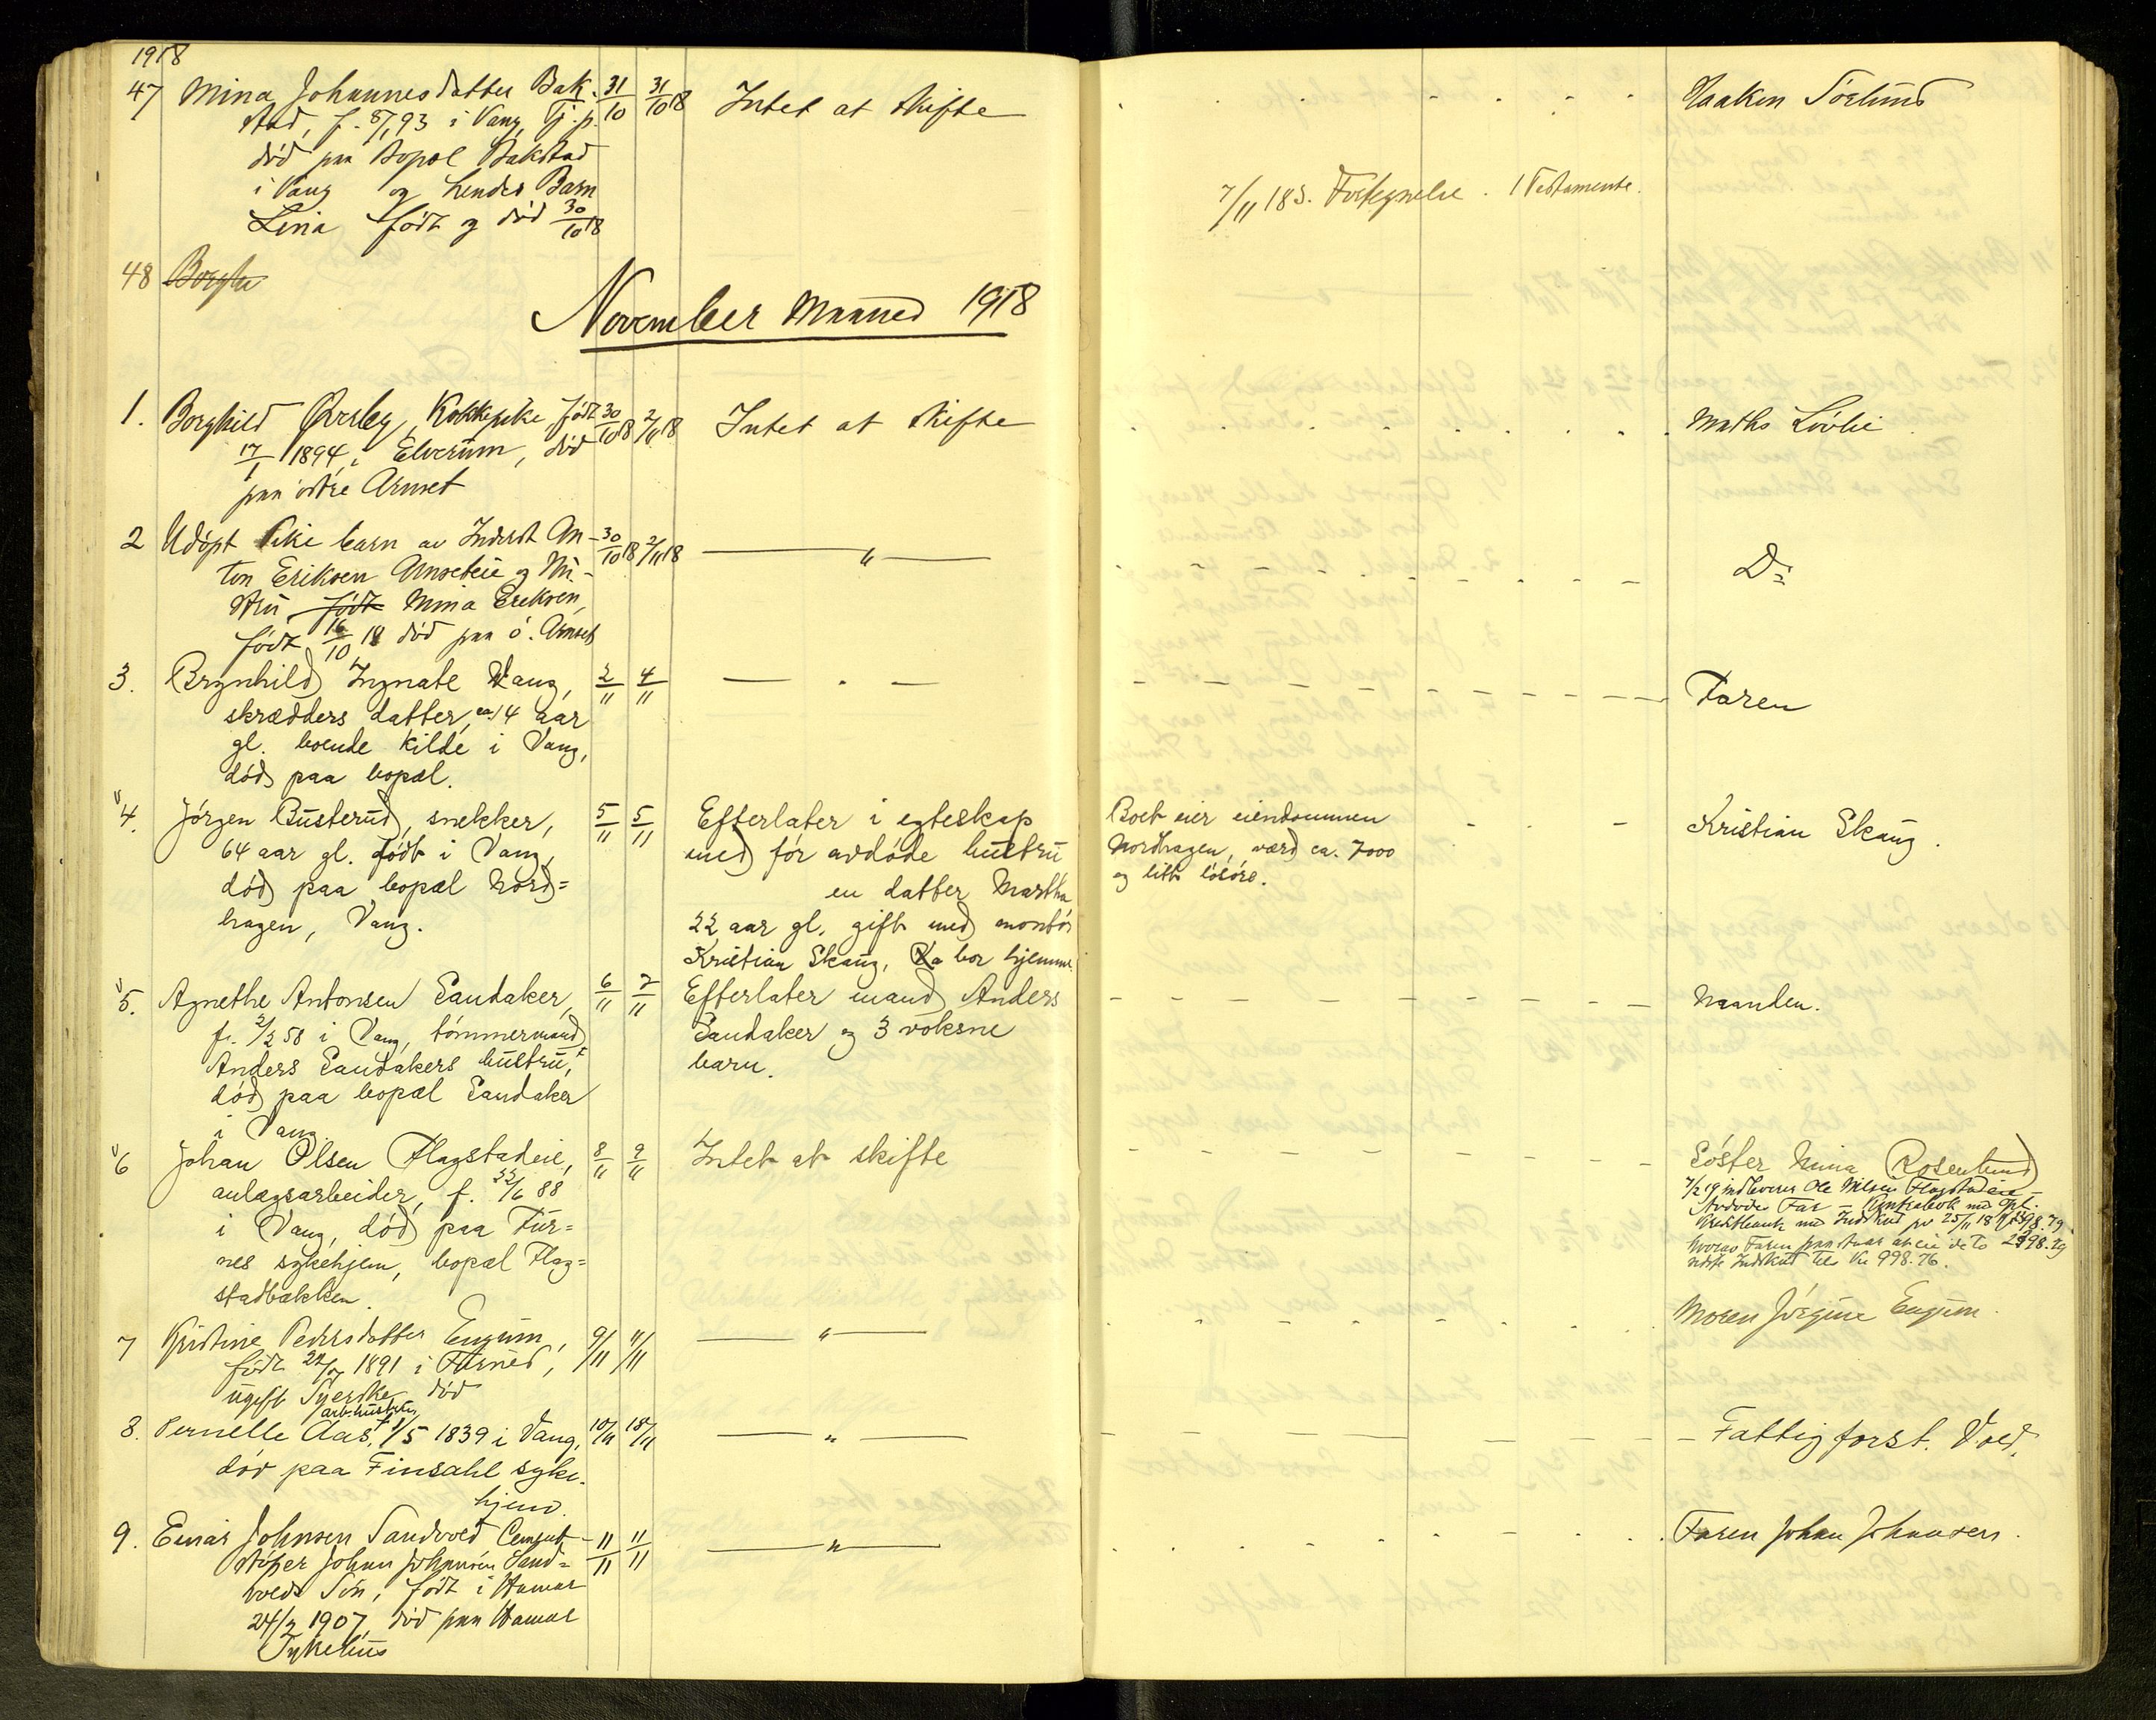 1918
47 Mina Johannesdatter Bak-
stad, f. 8/1 93 i Vang, Tj.p.
død paa Bopæl Bakstad
i Vang og hendes Barn
Lina født og død 30/10 18
31/10 31/10 18 Intet at skifte
Haaken Sørlund
7/11 18 s. Fortegnelse. 1 Testamente.
48 Borghi
November Maaned 1918
1. Borghild Ørsley, Kokkepike, født
17/1 1894 i Elverum, død
paa østre Arnset
30/10 18 2/11 18 Intet at skifte
Maths Løvlie
2 Udøpt Pike barn av Inderst An-
ton Eriksen Arnseteie og Hu-
stru født Mina Eriksen,
født 16/10 18 død paa ø. Arnset
30/10 18 2/11 18 — " —
Do
3. Brynhild Ingnate Vang,
skrædders datter, ca 14 aar
gl. boende Kilde i Vang,
død paa bopæl.
2/11 4/11 — " —
Faren
4. Jørgen Busterud, snekker,
64 aar gl. født i Vang,
død paa bopæl Nord=
hagen, Vang.
5/11 5/11 Efterlater i egteskap
med før avdøde hustru
en datter Martha
22 aar gl. gift med montør
Kristian Skaug, bor hjemme.
Boet eier eiendommen
Nordhagen, værd ca. 7000
og litt løsøre.
Kristian Skaug.
5. Agnethe Antonsen Sandaker,
f. 2/2 58 i Vang, tømmermand
Anders Sandakers hustru,
død paa bopæl Sandaker
i Vang
6/11 7/11 Efterlater mand Anders
Sandaker og 3 voksne
barn.
Manden.
6 Johan Olsen Flagstadeie,
anlægsarbeider, f. 22/6 88
i Vang, død paa Fur=
nes sykehjem, bopæl Flag=
stadbækken.
8/11 9/11 Intet at skifte
Søster Mina Rosenlund
7/2 19 indleverer Ole Nilsen Flagstadeie
Avdødes Far - Kontrabok med Opl.
Kreditbank med Indskud pr 25/11 18 Kr
hvorav Faren paastaar at eie
Indskud Kr 998.76.
7 Kristine Pedersdatter Engum,
født 22/7 1891 i Furnes,
ugift Syerske død
9/11 11/11 — " —
Moren Jørgine Engum.
8. Pernelle Aas, arb.hustru
f 1/5 1839 i Vang,
død paa Finsahl syke-
hjem.
10/11 18/11 — " —
Fattigforst. Vold.
9. Einar Johnsen Sandvold Cement-
støper Johan Johansen Sand=
volds Søn, født i Hamar
24/2 1907, død paa Hamar
Sykehus
11/11 11/11 — " —
Faren Johan Johansen.